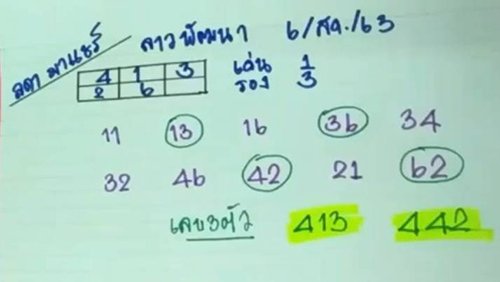 ลดา พาแชร์
ลาวพัฒนา 6/สค./63
4 1 3 เด่น 1
2 6 รอง 3
11 13 16 36 34
32 46 42 21 62
เลข3ตัว 413 442